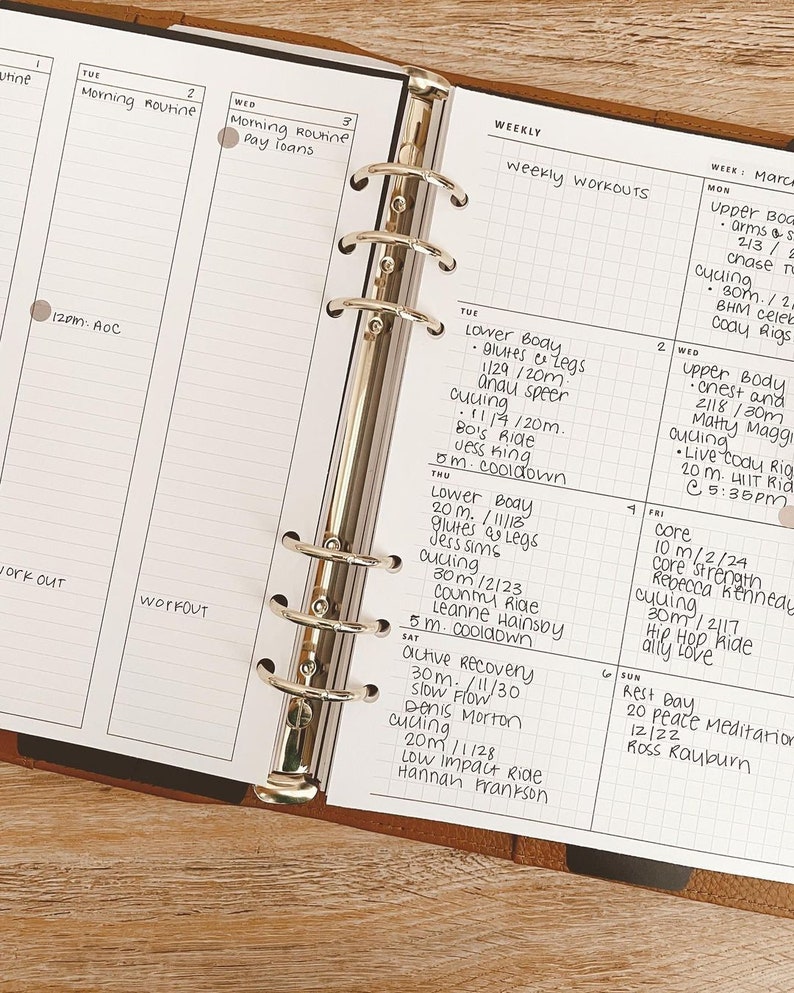 1
TUE
2
Morning Routine
12pm: AOC
WORK OUT
WED
3
Morning Routine
Pay loans
WORKOUT
WEEKLY
WEEK: March
Weekly Workouts
MON
Upper
arms &
2/3 /
Chase
Cycling
30m. /
BHM
Cody Rigs
TUE
2
Lower Body
• Glutes & Legs
1/29 / 20m.
Andy Speer
Cycling
• 11/4 / 20m.
80's Ride
Jess King
5 m. cooldown
WED
Upper Body
• Chest and
2/18 / 30m
Matty Maggi
Cycling
• Live Cody Rig
20 m. HIIT Rid
@ 5:35pm
THU
4
Lower Body
20 m. / 11/13
Glutes & Legs
Jess Sims
Cycling
30m / 2/23
Country Ride
Leanne Hainsby
5 m. cooldown
FRI
Core
10 m / 2/24
Core Strength
Rebecca Kennedy
Cycling
30m / 2/17
Hip Hop Ride
Ally Love
SAT
6
Active Recovery
30m. / 11/30
Slow Flow
Denis Morton
Cycling
20m / 1/28
Low Impact Ride
Hannah Frankson
SUN
Rest Day
20 Peace Meditation
12/22
Ross Rayburn